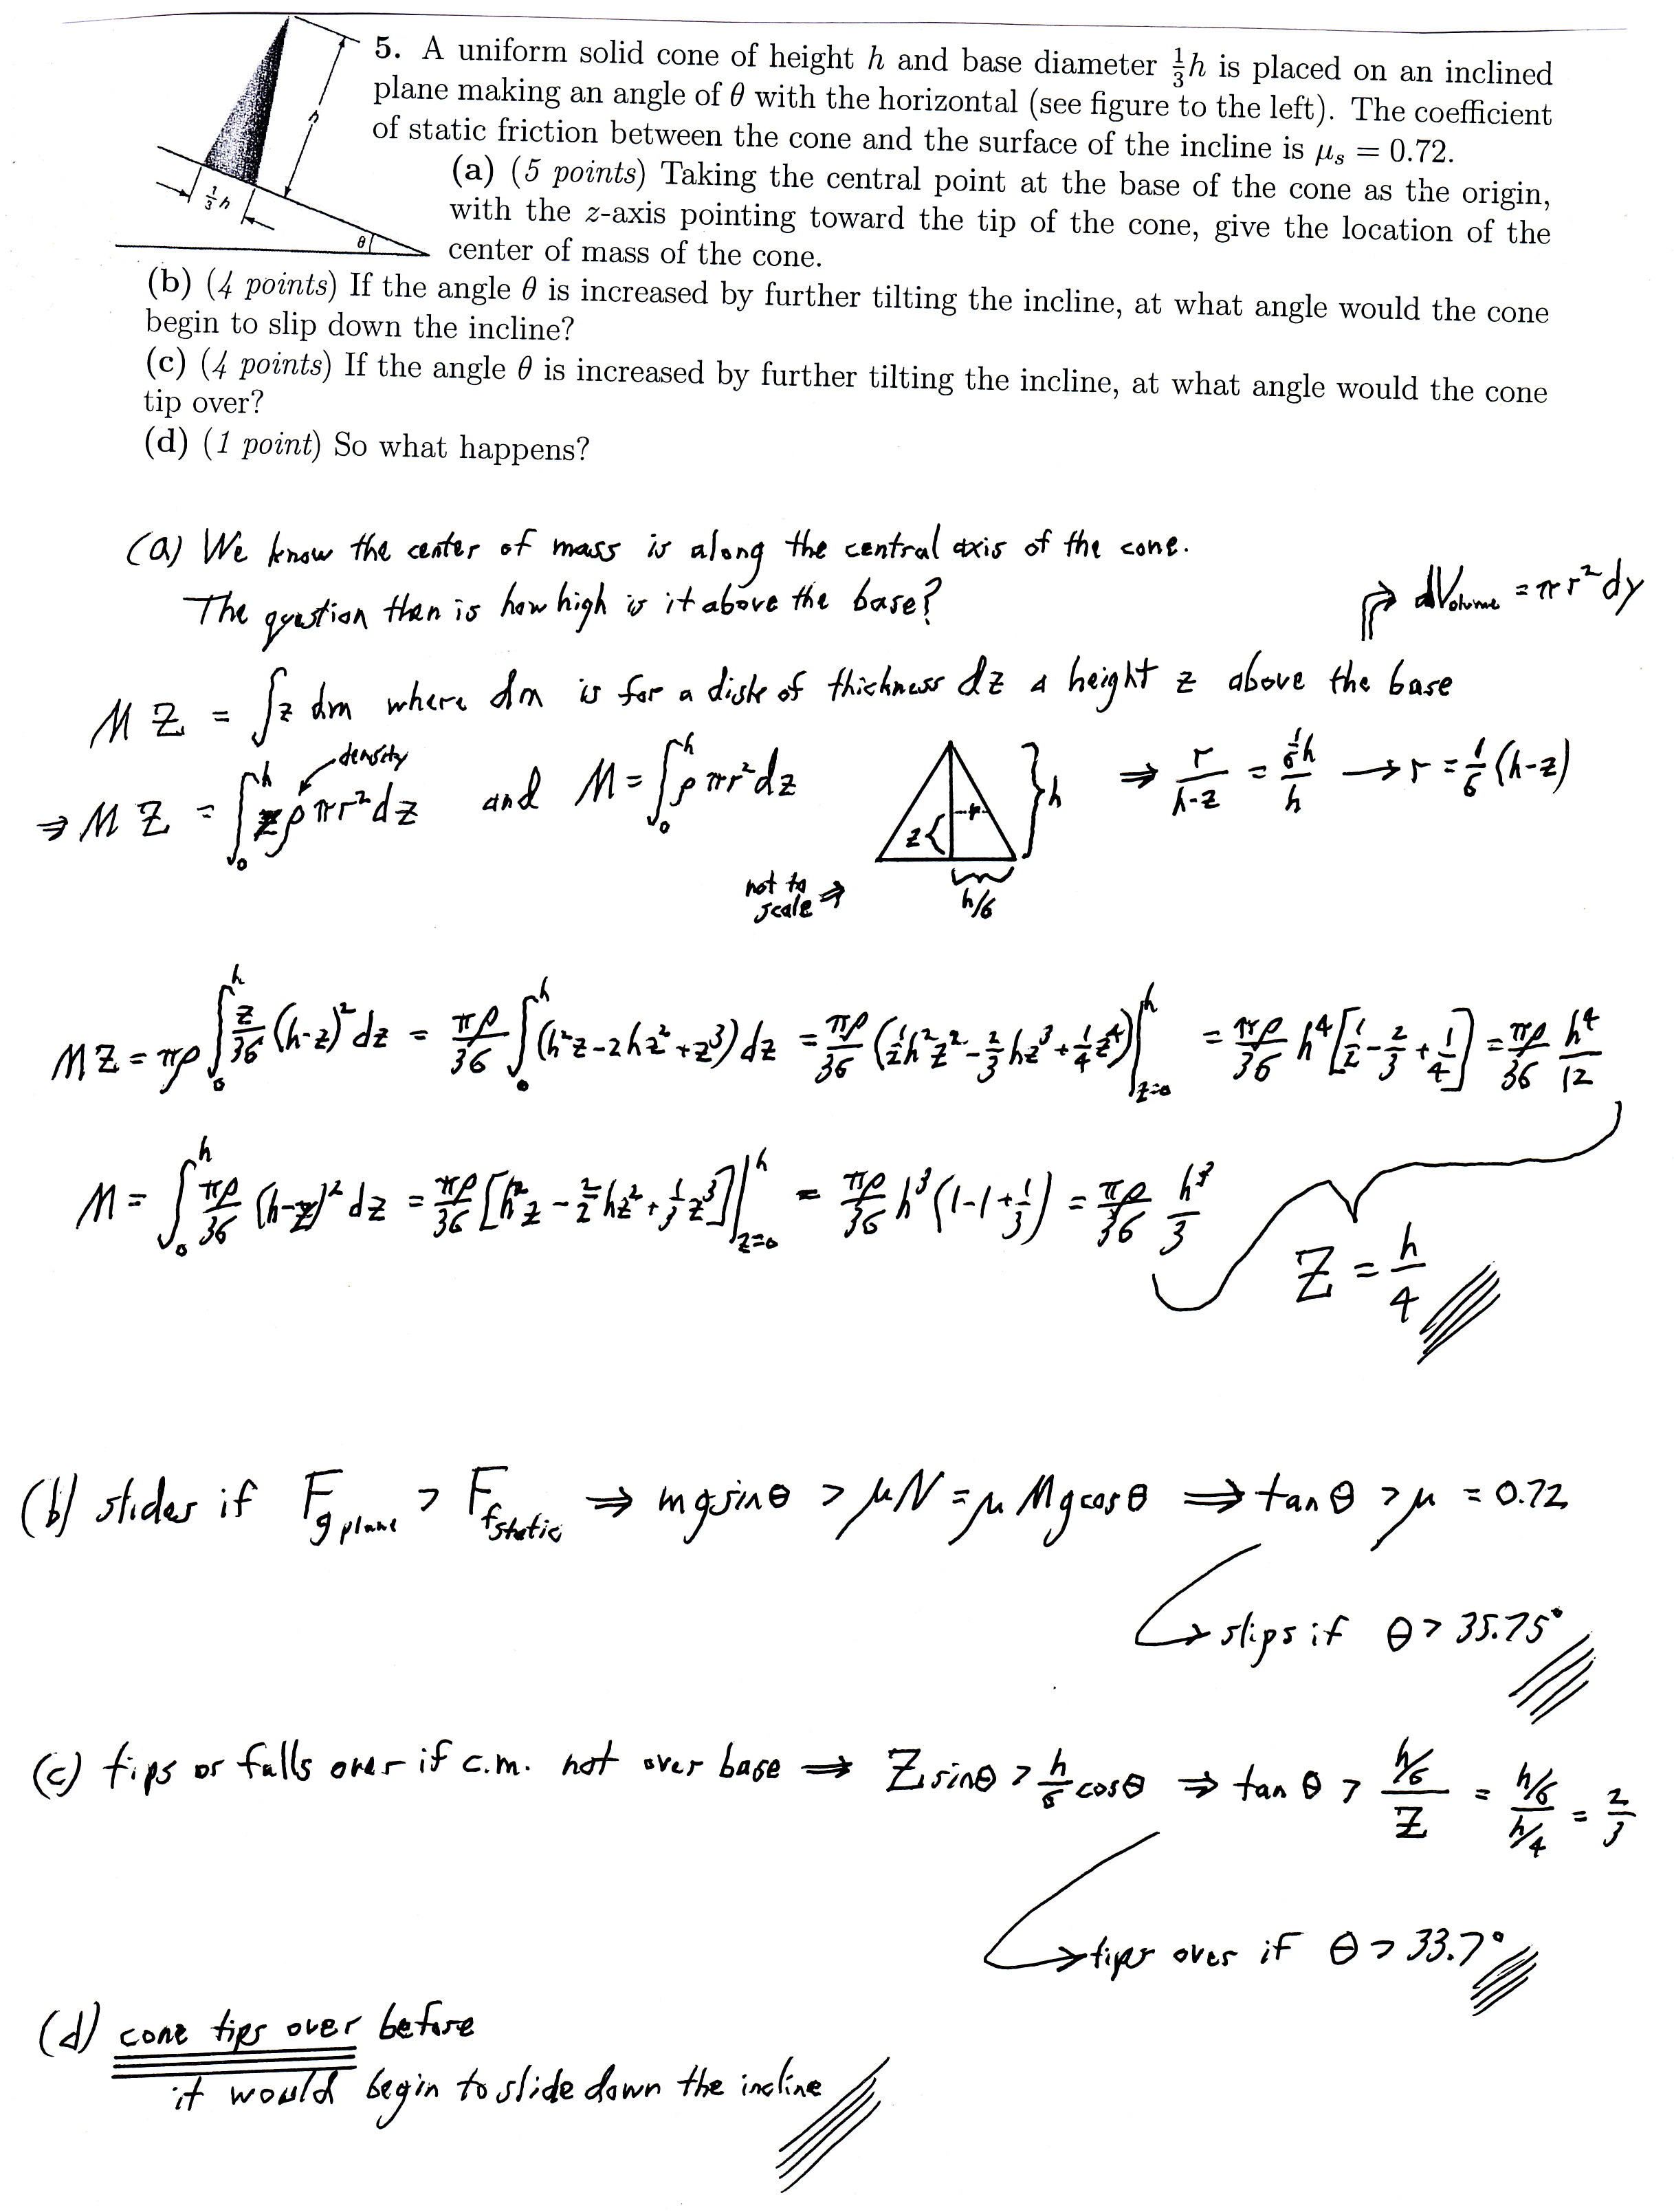 5. A uniform solid cone of height h and base diameter ⅓h is placed on an inclined
plane making an angle of θ with the horizontal (see figure to the left). The coefficient
of static friction between the cone and the surface of the incline is μs = 0.72.
(a) (5 points) Taking the central point at the base of the cone as the origin,
with the z-axis pointing toward the tip of the cone, give the location of the
center of mass of the cone.
h
⅓h
θ
(b) (4 points) If the angle θ is increased by further tilting the incline, at what angle would the cone
begin to slip down the incline?
(c) (4 points) If the angle θ is increased by further tilting the incline, at what angle would the cone
tip over?
(d) (1 point) So what happens?
(a) We know the center of mass is along the central axis of the cone.
The question then is how high is it above the base?
dVolume = πr²dy
M Z = ∫z dm where dm is for a disk of thickness dz a height z above the base
density
⇒ M Z = ∫₀ʰ zρπr²dz and M = ∫₀ʰ ρπr²dz
z r } h
⇒ r/(h-z) = (1/6 h)/h → r = 1/6 (h-z)
not to
scale ⇒
h/6
MZ = πρ ∫₀ʰ z/36 (h-z)² dz = πρ/36 ∫₀ʰ (h²z - 2hz² + z³) dz = πρ/36 (½h²z² - ⅔hz³ + ¼z⁴)|z=0 ʰ = πρ/36 h⁴ [1/2 - 2/3 + 1/4] = πρ/36 h⁴/12
M = ∫₀ʰ πρ/36 (h-z)² dz = πρ/36 [h²z - 2/2 hz² + ⅓z³]|z=0 ʰ = πρ/36 h³ (1-1+⅓) = πρ/36 h³/3
Z = h/4
(b) slides if Fg plane > Ffstatic ⇒ mg sinθ > μN = μMg cosθ ⇒ tanθ > μ = 0.72
→ slips if θ > 35.75°
(c) tips or falls over if c.m. not over base ⇒ Z sinθ > h/6 cosθ ⇒ tan θ > (h/6)/Z = (h/6)/(h/4) = 2/3
→ tips over if θ > 33.7°
(d) cone tips over before
it would begin to slide down the incline